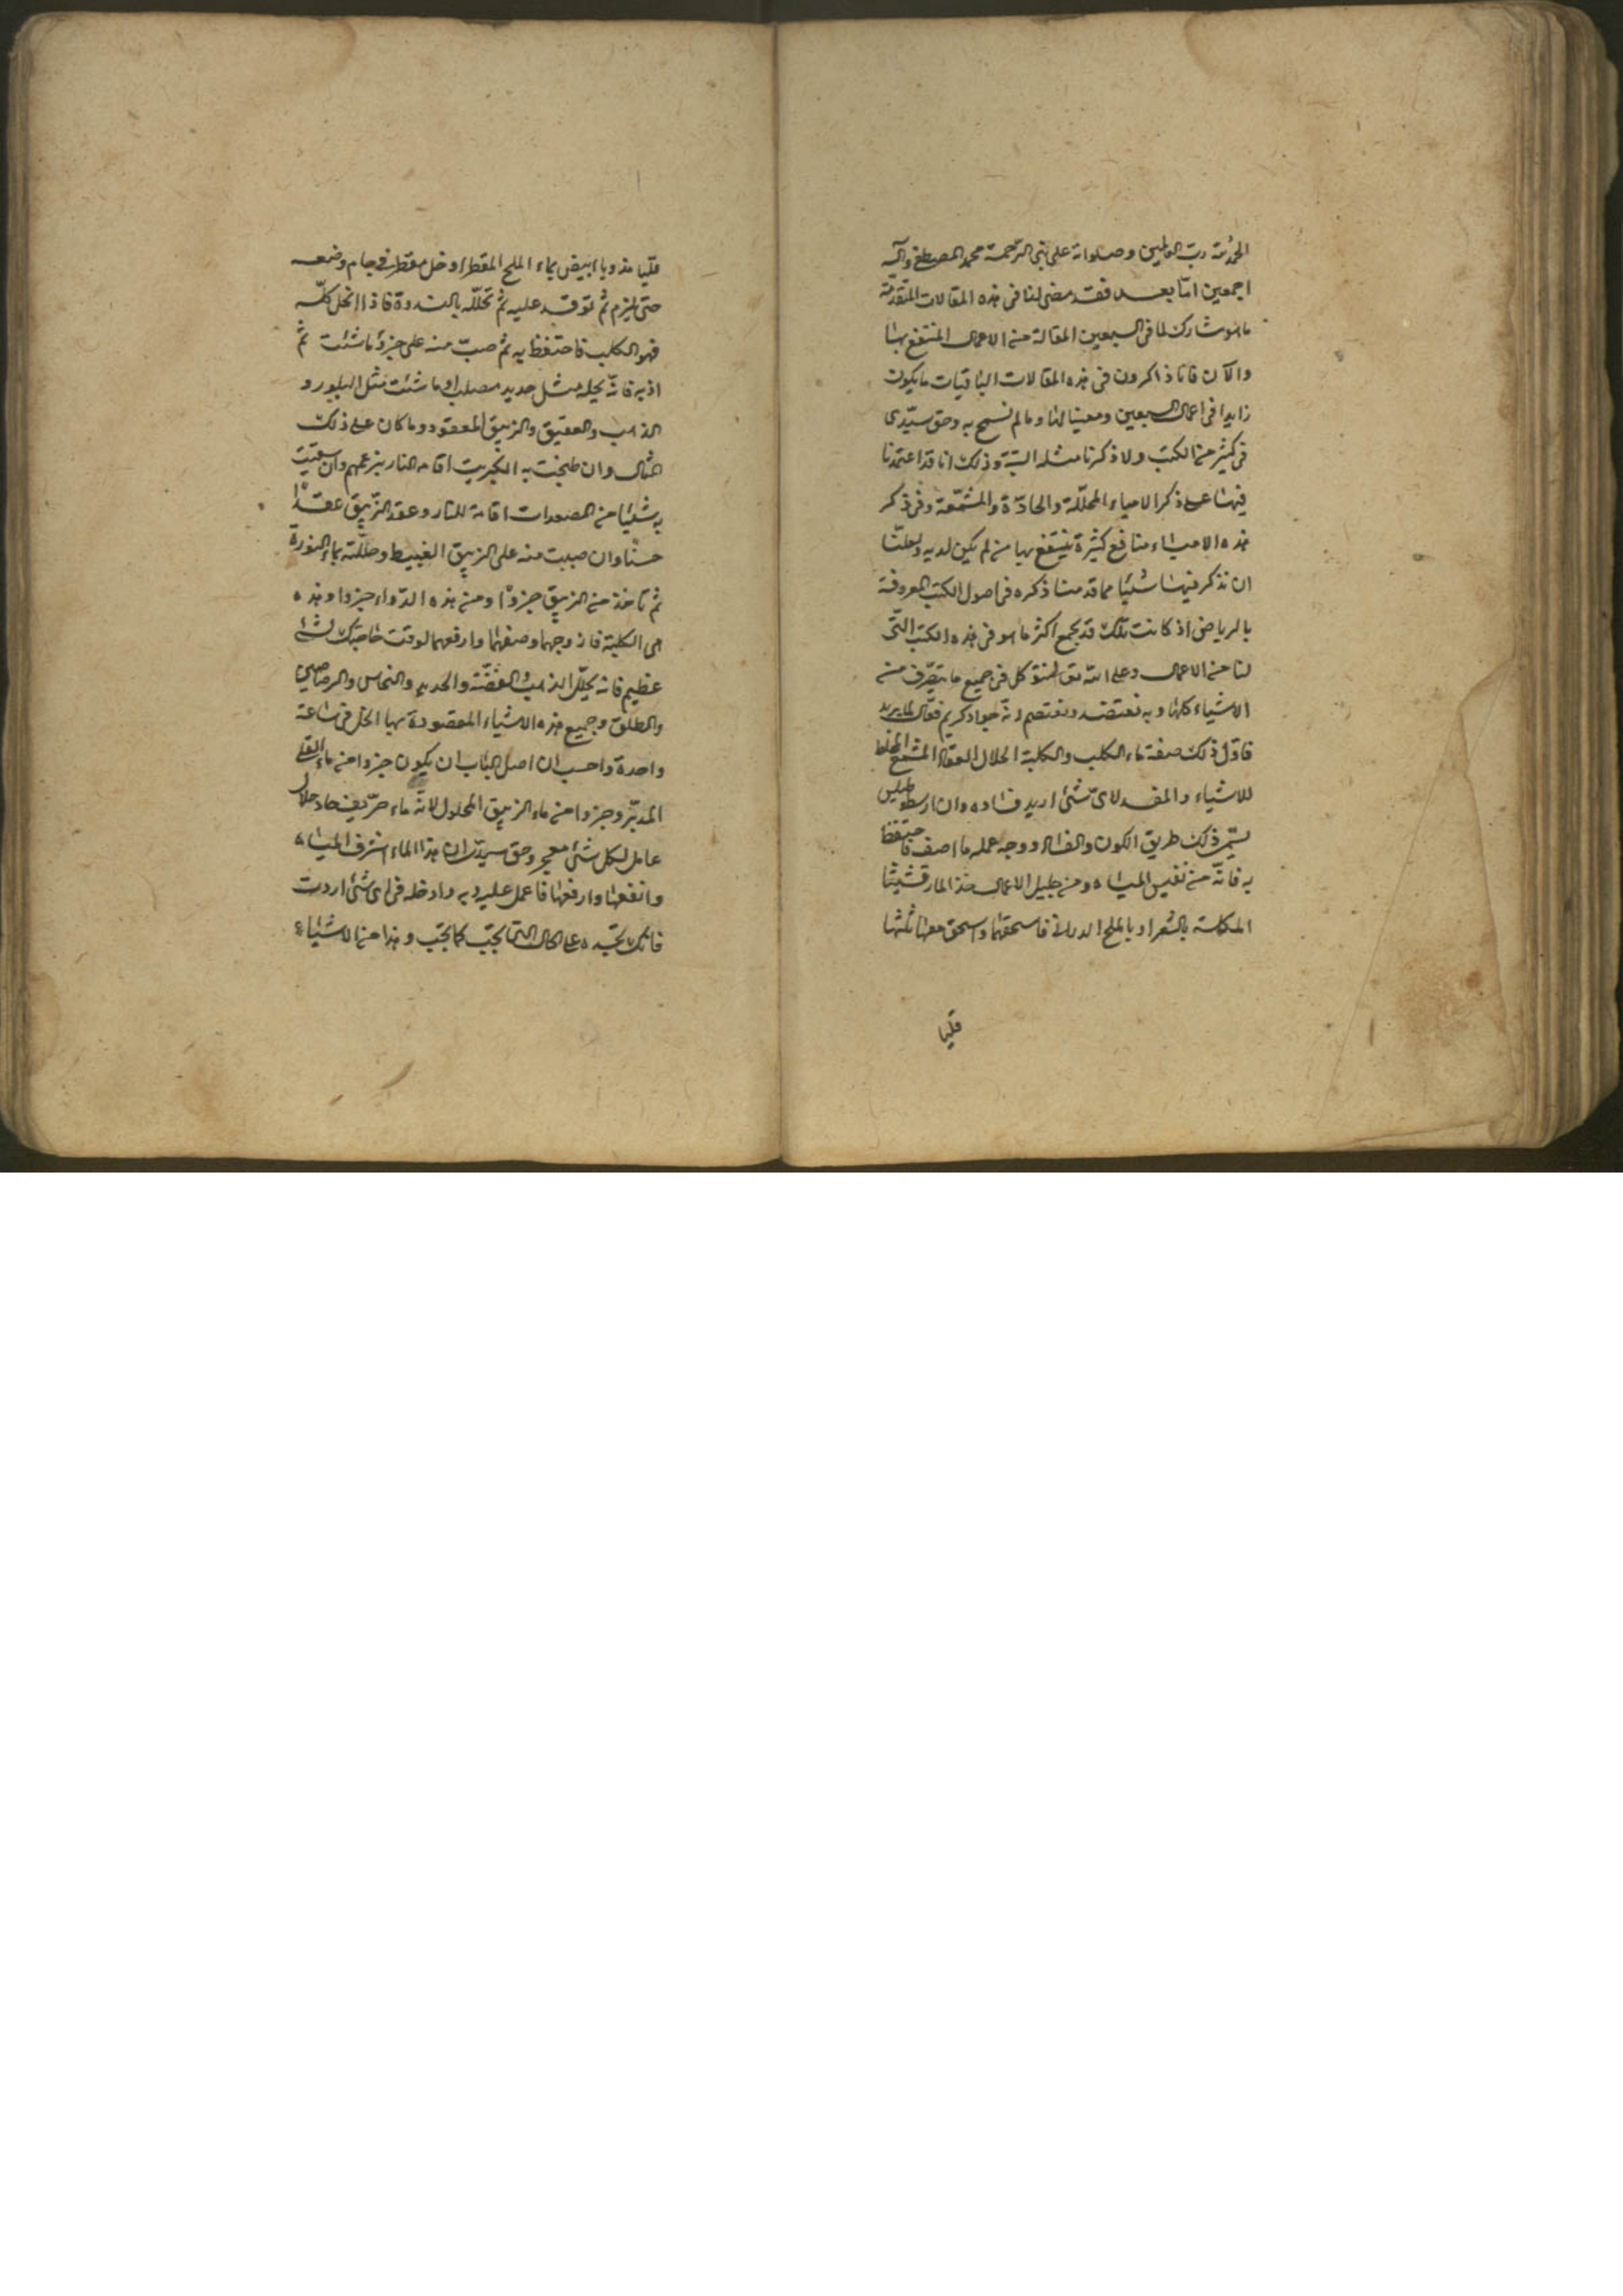 الحمد لله رب العالمين وصلواته على نبي الرحمة محمد المصطفى وآله
اجمعين اما بعد فقد مضى لنا فى هذه المقالات المتقدمة
ما هو شارك لما فى السبعين المقالة من الاعمال المنتفع بها
والآن فانا ذاكرون فى هذه المقالات الباقيات ما يكون
زايدا فى اعمال السبعين ومعينا لها وما لم نسمح به وحق سيدى
فى كثير من الكتب ولا ذكرنا مثله البتة وذلك انا قد اعتمدنا
فيها على ذكر الامياه المحللة والحادة والمشمعة وفى ذكر
هذه الامياه منافع كثيرة ينتفع بها من لم يكن لديه ولعلنا
ان نذكر فيها شيئا مما قدمنا ذكره فى اصول الكتب المعروفة
بالرياض اذ كانت تلك قد تجمع اكثر ما هو فى هذه الكتب التى
لنا من الاعمال وعلى الله تق نتوكل فى جميع ما يتصرف من
الاشياء كلها وبه نعتضد ونعتصم انه جواد كريم فعال لما يريد
فاول ذلك صفة ماء الكلب والكلبة الحلال العقاد المشمع المخلط
للاشياء والمفسد لاى شئ اريد فساده وان ارسطوطاليس
يسمى ذلك طريق الكون والفساد ووجه عمله ما اصف فاحتفظ
به فانه من نفيس المياه ومن جليل الاعمال خذ المارقشيثا
المكلسة بالشعر او بالملح الدرانى فاسحقها واسحق معها ثلثها
قليا
قليا مذوبا ابيض بماء الملح المقطر او خل مقطر فى جام وضعه
حتى يلزم ثم توقد عليه ثم تحلله بالندوة فاذا انحل كله
فهو الكلب فاحتفظ به ثم صب منه على جزؤ ما شئت ثم
اذبه فانه يحله مثل حديد مصلب او ما شئت مثل البلور و
الذهب والعقيق والزيبق المعقود وما كان على ذلك
المثال وان طبخت به الكبريت اقامه للنار بزعمهم وان سقيت
به شيئا من المصعدات اقامه للنار وعقد الزيبق عقدا
حسنا وان صببت منه على الزيبق الغبيط وحللته بماء النورة
ثم تاخذ من الزيبق جزوا ومن هذه الدواء جزوا وهذه
هى الكلبة فازوجهما وصفهما وارفعهما لوقت حاجتك لشئ
عظيم فانه يحلل الذهب والفضة والحديد والنحاس والرصاصين
والطلق وجميع هذه الاشياء المقصودة بها الحل فى ساعة
واحدة واحسب ان اصل الباب ان يكون جزوا من ماء القلى
المدبر وجزوا من ماء الزيبق المحلول لانه ماء حريف حاد حلال
عامل لكل شئ معجز وحق سيدى ان هذا الماء اشرف المياه
وانفعها وارفعها فاعمل عليه وبه وادخله فى اى شئ اردت
فانك تجده على الحال التى تجب كما تجب وهذا من الاشياء